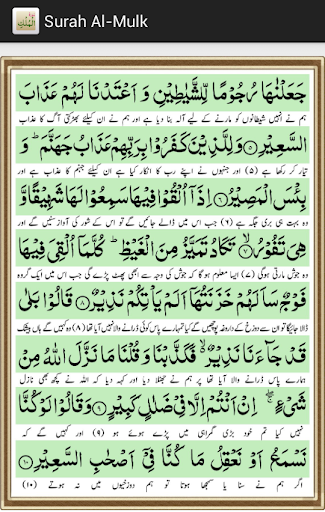 Surah Al-Mulk
جَعَلْنٰهَا رُجُوْمًا لِّلشَّيٰطِيْنِ وَ اَعْتَدْنَا لَهُمْ عَذَابَ
ہم نے انہیں شیطانوں کو مارنے کے لیے آلہ بنا دیا ہے اور ہم نے ان کے لیے بھڑکتی آگ کا عذاب
السَّعِيْرِ ۵ وَلِلَّذِيْنَ كَفَرُوْا بِرَبِّهِمْ عَذَابُ جَهَنَّمَ ؕ وَ
تیار کر رکھا ہے (۵) اور جنہوں نے اپنے رب کا انکار کیا ہے ان کے لیے جہنم کا عذاب ہے اور
بِئْسَ الْمَصِيْرُ ۶ اِذَاۤ اُلْقُوْا فِيْهَا سَمِعُوْا لَهَا شَهِيْقًا وَّ
وہ بہت ہی بری جگہ ہے (۶) جب اس میں ڈالے جائیں گے تو اس کے شور کی آواز سنیں گے اور
هِيَ تَفُوْرُ ۷ تَكَادُ تَمَيَّزُ مِنَ الْغَيْظِ ؕ كُلَّمَاۤ اُلْقِيَ فِيْهَا
وہ جوش مارتی ہوگی (۷) ایسا معلوم ہوگا کہ جوش کی وجہ سے ابھی پھٹ پڑے گی جب اس میں ایک گروہ
فَوْجٌ سَاَلَهُمْ خَزَنَتُهَاۤ اَلَمْ يَاْتِكُمْ نَذِيْرٌ ۸ قَالُوْا بَلٰى
ڈالا جائیگا تو ان سے دوزخ کے داروغہ پوچھیں گے کیا تمہارے پاس کوئی ڈرانے والا نہیں آیا تھا (۸) وہ کہیں گے ہاں بیشک
قَدْ جَآءَنَا نَذِيْرٌ ۙ فَكَذَّبْنَا وَ قُلْنَا مَا نَزَّلَ اللّٰهُ مِنْ
ہمارے پاس ڈرانے والا آیا تھا پر ہم نے جھٹلا دیا اور کہہ دیا کہ اللہ نے کچھ بھی نازل
شَيْءٍ ۖۚ اِنْ اَنْتُمْ اِلَّا فِيْ ضَلٰلٍ كَبِيْرٍ ۹ وَقَالُوْا لَوْ كُنَّا
نہیں کیا تم خود بڑی گمراہی میں پڑے ہوئے ہو (۹) اور کہیں گے کہ
نَسْمَعُ اَوْ نَعْقِلُ مَا كُنَّا فِيْۤ اَصْحٰبِ السَّعِيْرِ ۱۰
اگر ہم نے سنا یا سمجھا ہوتا تو ہم دوزخیوں میں نہ ہوتے (۱۰)